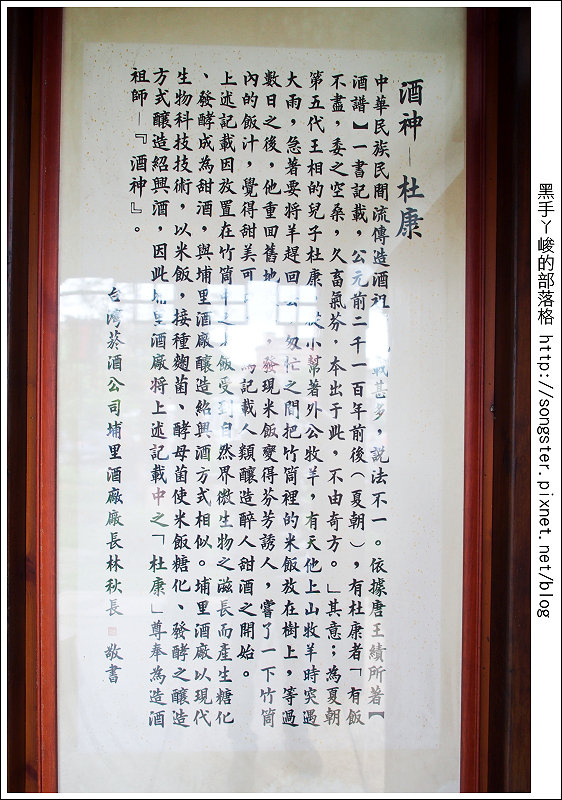 酒神－杜康
中華民族民間流傳造酒祖載甚多，說法不一。依據唐王績所著【
酒譜】一書記載，公元前二千一百年前後（夏朝），有杜康者「有飯
不盡，委之空桑，久畜氣芬，本出于此，不由奇方。」其意；為夏朝
第五代王相的兒子杜康從小幫著外公牧羊，有天他上山牧羊時突遇
大雨，急著要將羊趕回匆忙之間把竹筒裡的米飯放在樹上，等過
數日之後，他重回舊地，發現米飯變得芬芳誘人，嘗了一下竹筒
內的飯汁，覺得甜美可為記載人類釀造醉人甜酒之開始。
上述記載因放置在竹筒飯受到自然界微生物之滋長而產生糖化
、發酵成為甜酒，與埔里酒廠釀造紹興酒方式相似。埔里酒廠以現代
生物科技技術，以米飯，接種麴菌、酵母菌使米飯糖化、發酵之釀造
方式釀造紹興酒，因此埔里酒廠將上述記載中之「杜康」尊奉為造酒
祖師－『酒神』。
台灣菸酒公司埔里酒廠廠長林秋長 敬書
黑手ㄚ峻的部落格 http://songster.pixnet.net/blog